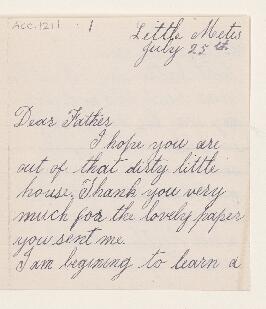 Acc. 1211
Little Metis
July 25th.
Dear Father
I hope you are
out of that dirty little
house, Thank you very
much for the lovely paper
you sent me.
I am begining to learn a